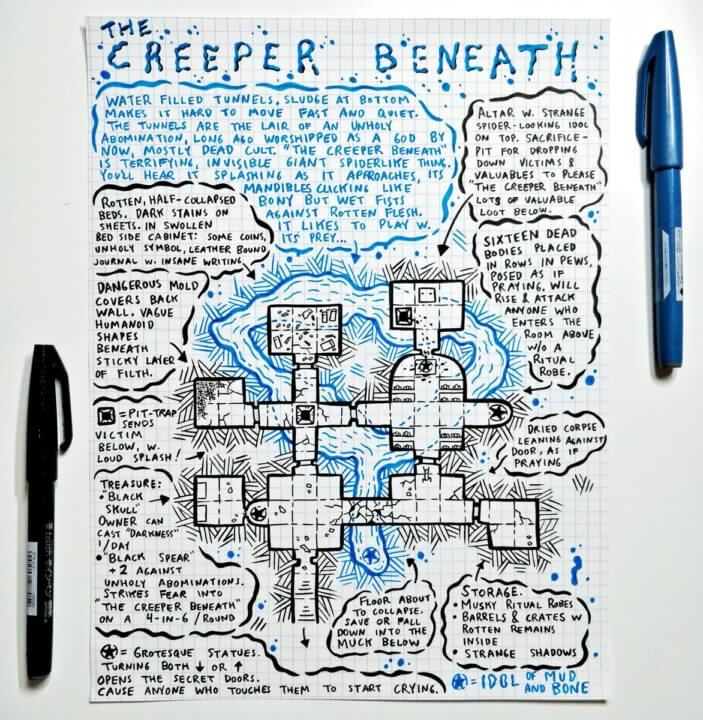 THE
CREEPER BENEATH
WATER FILLED TUNNELS, SLUDGE AT BOTTOM
MAKES IT HARD TO MOVE FAST AND QUIET.
THE TUNNELS ARE THE LAIR OF AN UNHOLY
ABOMINATION, LONG AGO WORSHIPPED AS A GOD BY
NOW, MOSTLY DEAD CULT. "THE CREEPER BENEATH"
IS TERRIFYING, INVISIBLE GIANT SPIDERLIKE THING.
YOU'LL HEAR IT SPLASHING AS IT APPROACHES, ITS
MANDIBLES CLICKING LIKE
BONY BUT WET FISTS
AGAINST ROTTEN FLESH.
IT LIKES TO PLAY W.
ITS PREY...
ALTAR W. STRANGE
SPIDER-LOOKING IDOL
ON TOP. SACRIFICE-
PIT FOR DROPPING
DOWN VICTIMS &
VALUABLES TO PLEASE
"THE CREEPER BENEATH"
LOTS OF VALUABLE
LOOT BELOW.
ROTTEN, HALF-COLLAPSED
BEDS. DARK STAINS ON
SHEETS. IN SWOLLEN
BED SIDE CABINET: SOME COINS,
UNHOLY SYMBOL, LEATHER BOUND
JOURNAL W. INSANE WRITING.
SIXTEEN DEAD
BODIES PLACED
IN ROWS IN PEWS,
POSED AS IF
PRAYING, WILL
RISE & ATTACK
ANYONE WHO
ENTERS THE
ROOM ABOVE
W/O A
RITUAL
ROBE.
DANGEROUS MOLD
COVERS BACK
WALL. VAGUE
HUMANOID
SHAPES
BENEATH
STICKY LAYER
OF FILTH.
= PIT-TRAP
SENDS
VICTIM
BELOW, W.
LOUD SPLASH!
DRIED CORPSE
LEANING AGAINST
DOOR, AS IF
PRAYING
TREASURE:
• "BLACK
SKULL"
OWNER CAN
CAST "DARKNESS"
1/DAY
• "BLACK SPEAR"
+2 AGAINST
UNHOLY ABOMINATIONS.
STRIKES FEAR INTO
"THE CREEPER BENEATH"
ON A 4-IN-6/ROUND
FLOOR ABOUT
TO COLLAPSE.
SAVE OR FALL
DOWN INTO THE
MUCK BELOW
STORAGE.
• MUSKY RITUAL ROBES
• BARRELS & CRATES W
ROTTEN REMAINS
INSIDE
• STRANGE SHADOWS
= GROTESQUE STATUES.
TURNING BOTH ↓ OR ↑
OPENS THE SECRET DOORS.
CAUSE ANYONE WHO TOUCHES THEM TO START CRYING.
= IDOL OF MUD
AND BONE